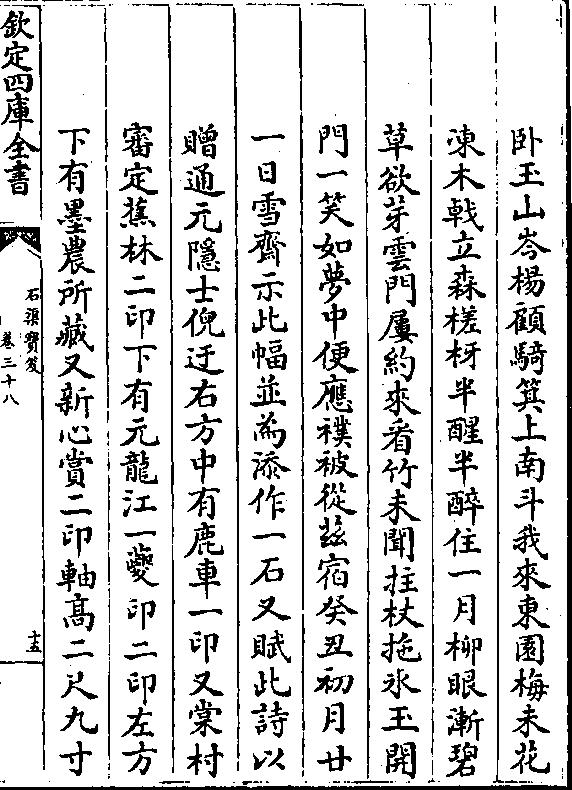 卧玉山岑楊顧騎箕上南斗我來東園梅未花
凍木戟立森槎枒半醒半醉住一月柳眼漸碧
草欲芽雲門屢約來看竹未聞拄杖拖氷玉開
門一笑如夢中便應襆被從茲宿癸丑初月廿
一日雪齋示此幅並為添作一石又賦此詩以
贈通元隱士倪迂右方中有鹿車一印又棠村
審定蕉林二印下有元龍江一夔印二印左方
下有墨農所藏又新心賞二印軸高二尺九寸
欽定四庫全書
石渠寶笈
卷三十八
十五